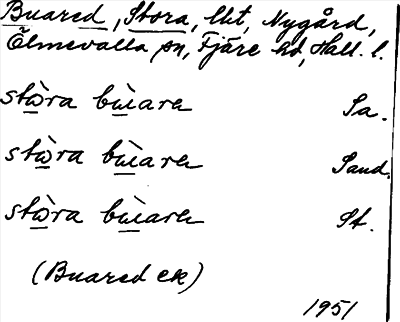 Buared, Stora, lht, Nygård,
Ölmevalla sn, Fjäre hd, Hall. l.
stὼra bùaren Sa.
stὼra bùaren Sand.
stὼra bùaren St.
(Buared ek)
1951